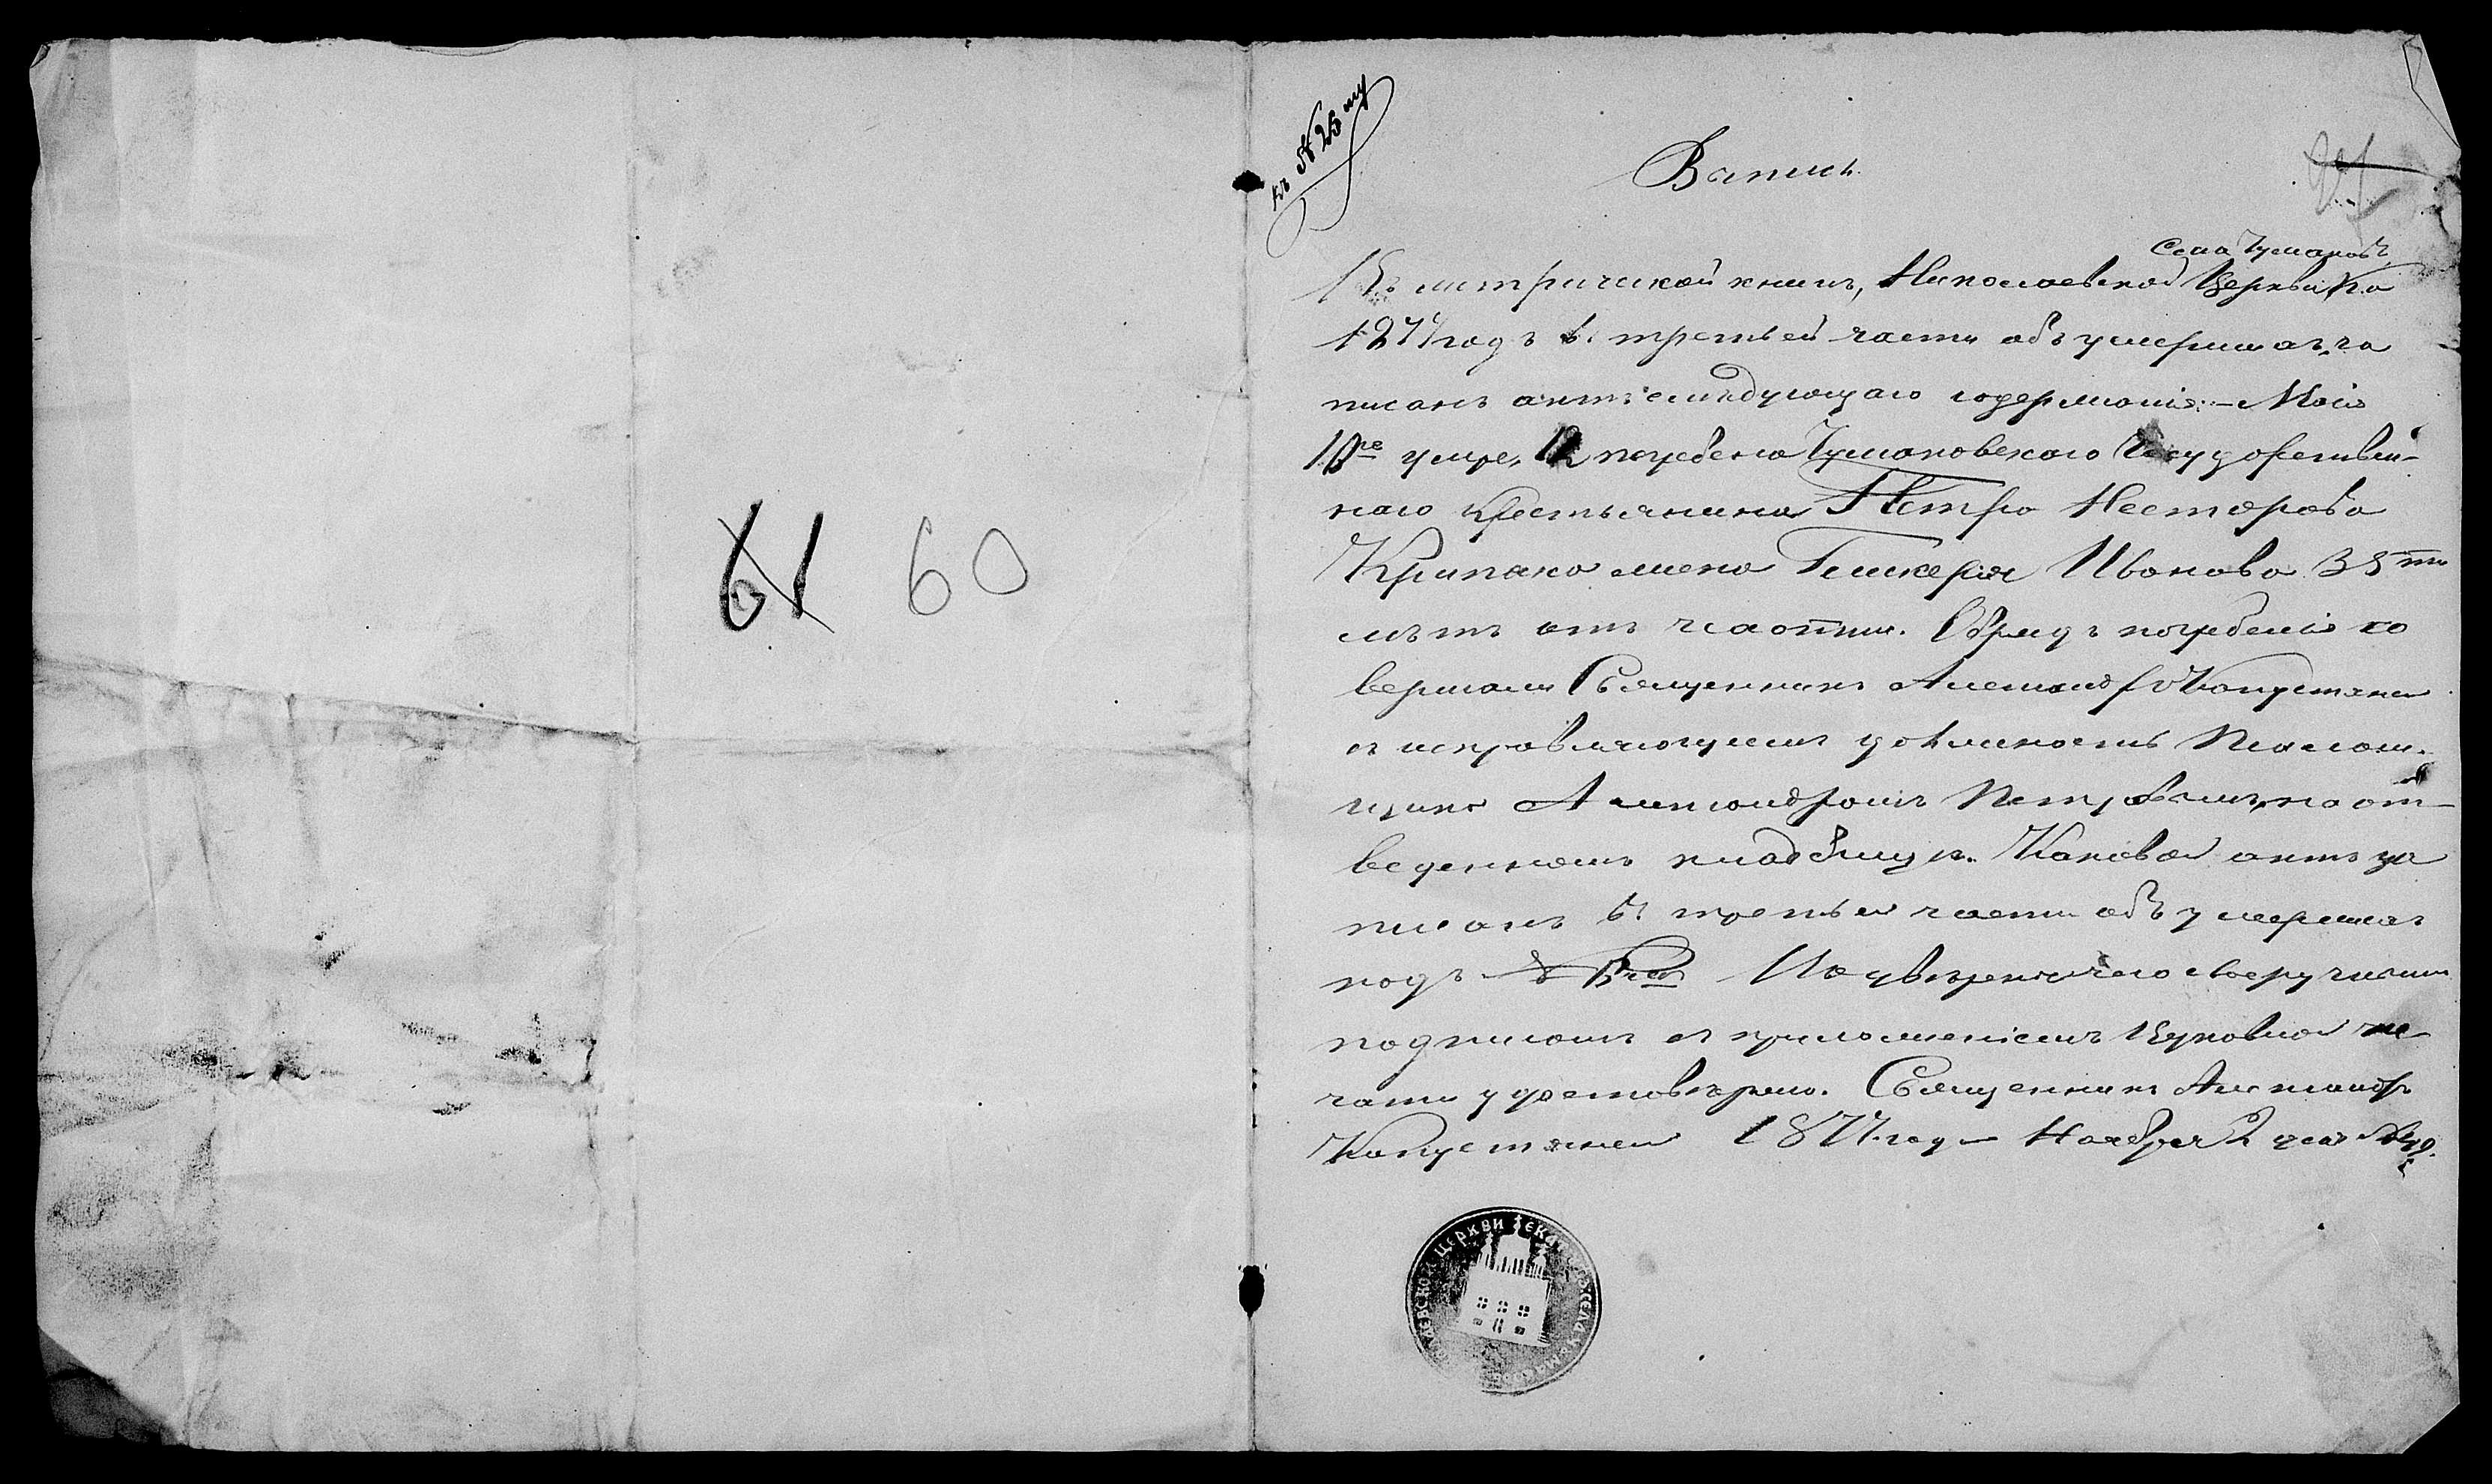 61 60
къ № 25му
Запись
27
Села Чумаковъ
Въ метрической книгѣ, Николаевской Церкви, на
1877 годъ въ третьей части объ умершихъ, за
писанъ актъ слѣдующаго содержанія: – Маія
10го умре, 12 погребена Чумаковскаго Государствен-
наго крестьянина Петра Нестерова
Крипака жена Гликерія Иванова 35ти
лѣтъ отъ чахотки. Обрядъ погребенія со
вершали Священникъ Александръ Капустянск
съ исправляющимъ должность Псалом-
щика Александромъ Петровымъ, на от-
веденномъ кладбищѣ. Каковой актъ за
писанъ въ третьей части объ умершихъ
подъ № своеручнымъ
подписомъ съ приложеніемъ Церковной пе
чати удостовѣряю. Священникъ Александръ
Капустянск 1877 года Ноября 2 дня №
ЦЕРКВИ ЕКА